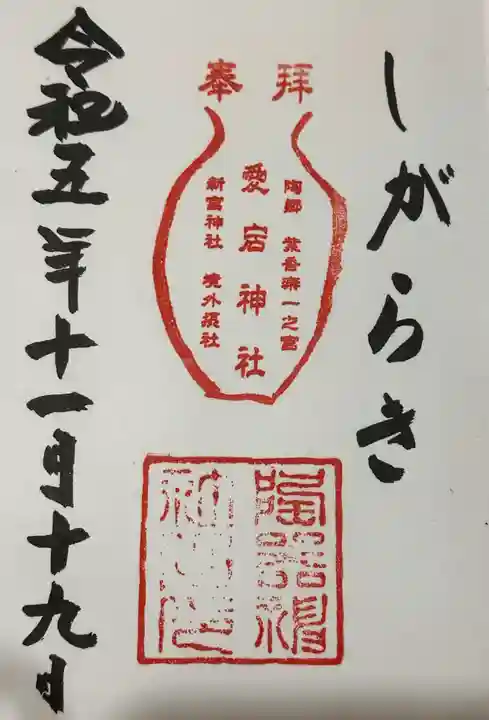 しがらき
奉拝
陶郷 紫香楽一之宮
愛宕神社
新宮神社 境外末社
陶器神社
令和五年十一月十九日